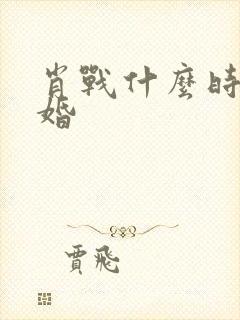 肖戰什麼時
婚
賈飛